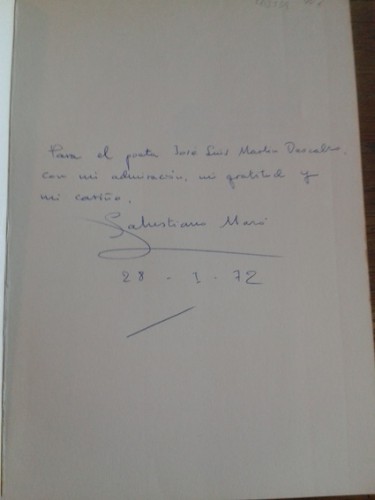 Para el poeta José Luis Martín Descalzo,
con mi admiración, mi gratitud y
mi cariño.
Salustiano Masó
28 - 1 - 72